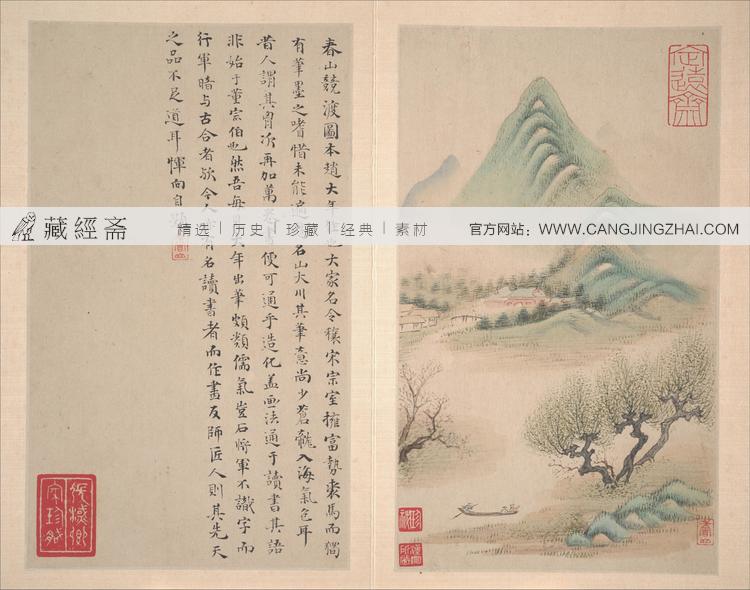 春山競渡圖本趙大年
大家名令穰宋宗室擁富勢裘馬而獨
有筆墨之嗜惜未能
名山大川其筆意尚少蒼龍入海氣色耳
昔人謂其胸次再加萬卷
便可通乎造化蓋画法通于讀書其語
非始于董宗伯也然吾每
大年出筆頗類儒氣豈石將軍不識字而
行軍暗与古合者欤今人
有名讀書者而作畫友師匠人則其先天
之品不足道耳惲向自題
定遠齋
張模卿
家珍藏
藏經斋
精选 | 历史 | 珍藏 | 经典 | 素材
官方网站:WWW.CANGJINGZHAI.COM